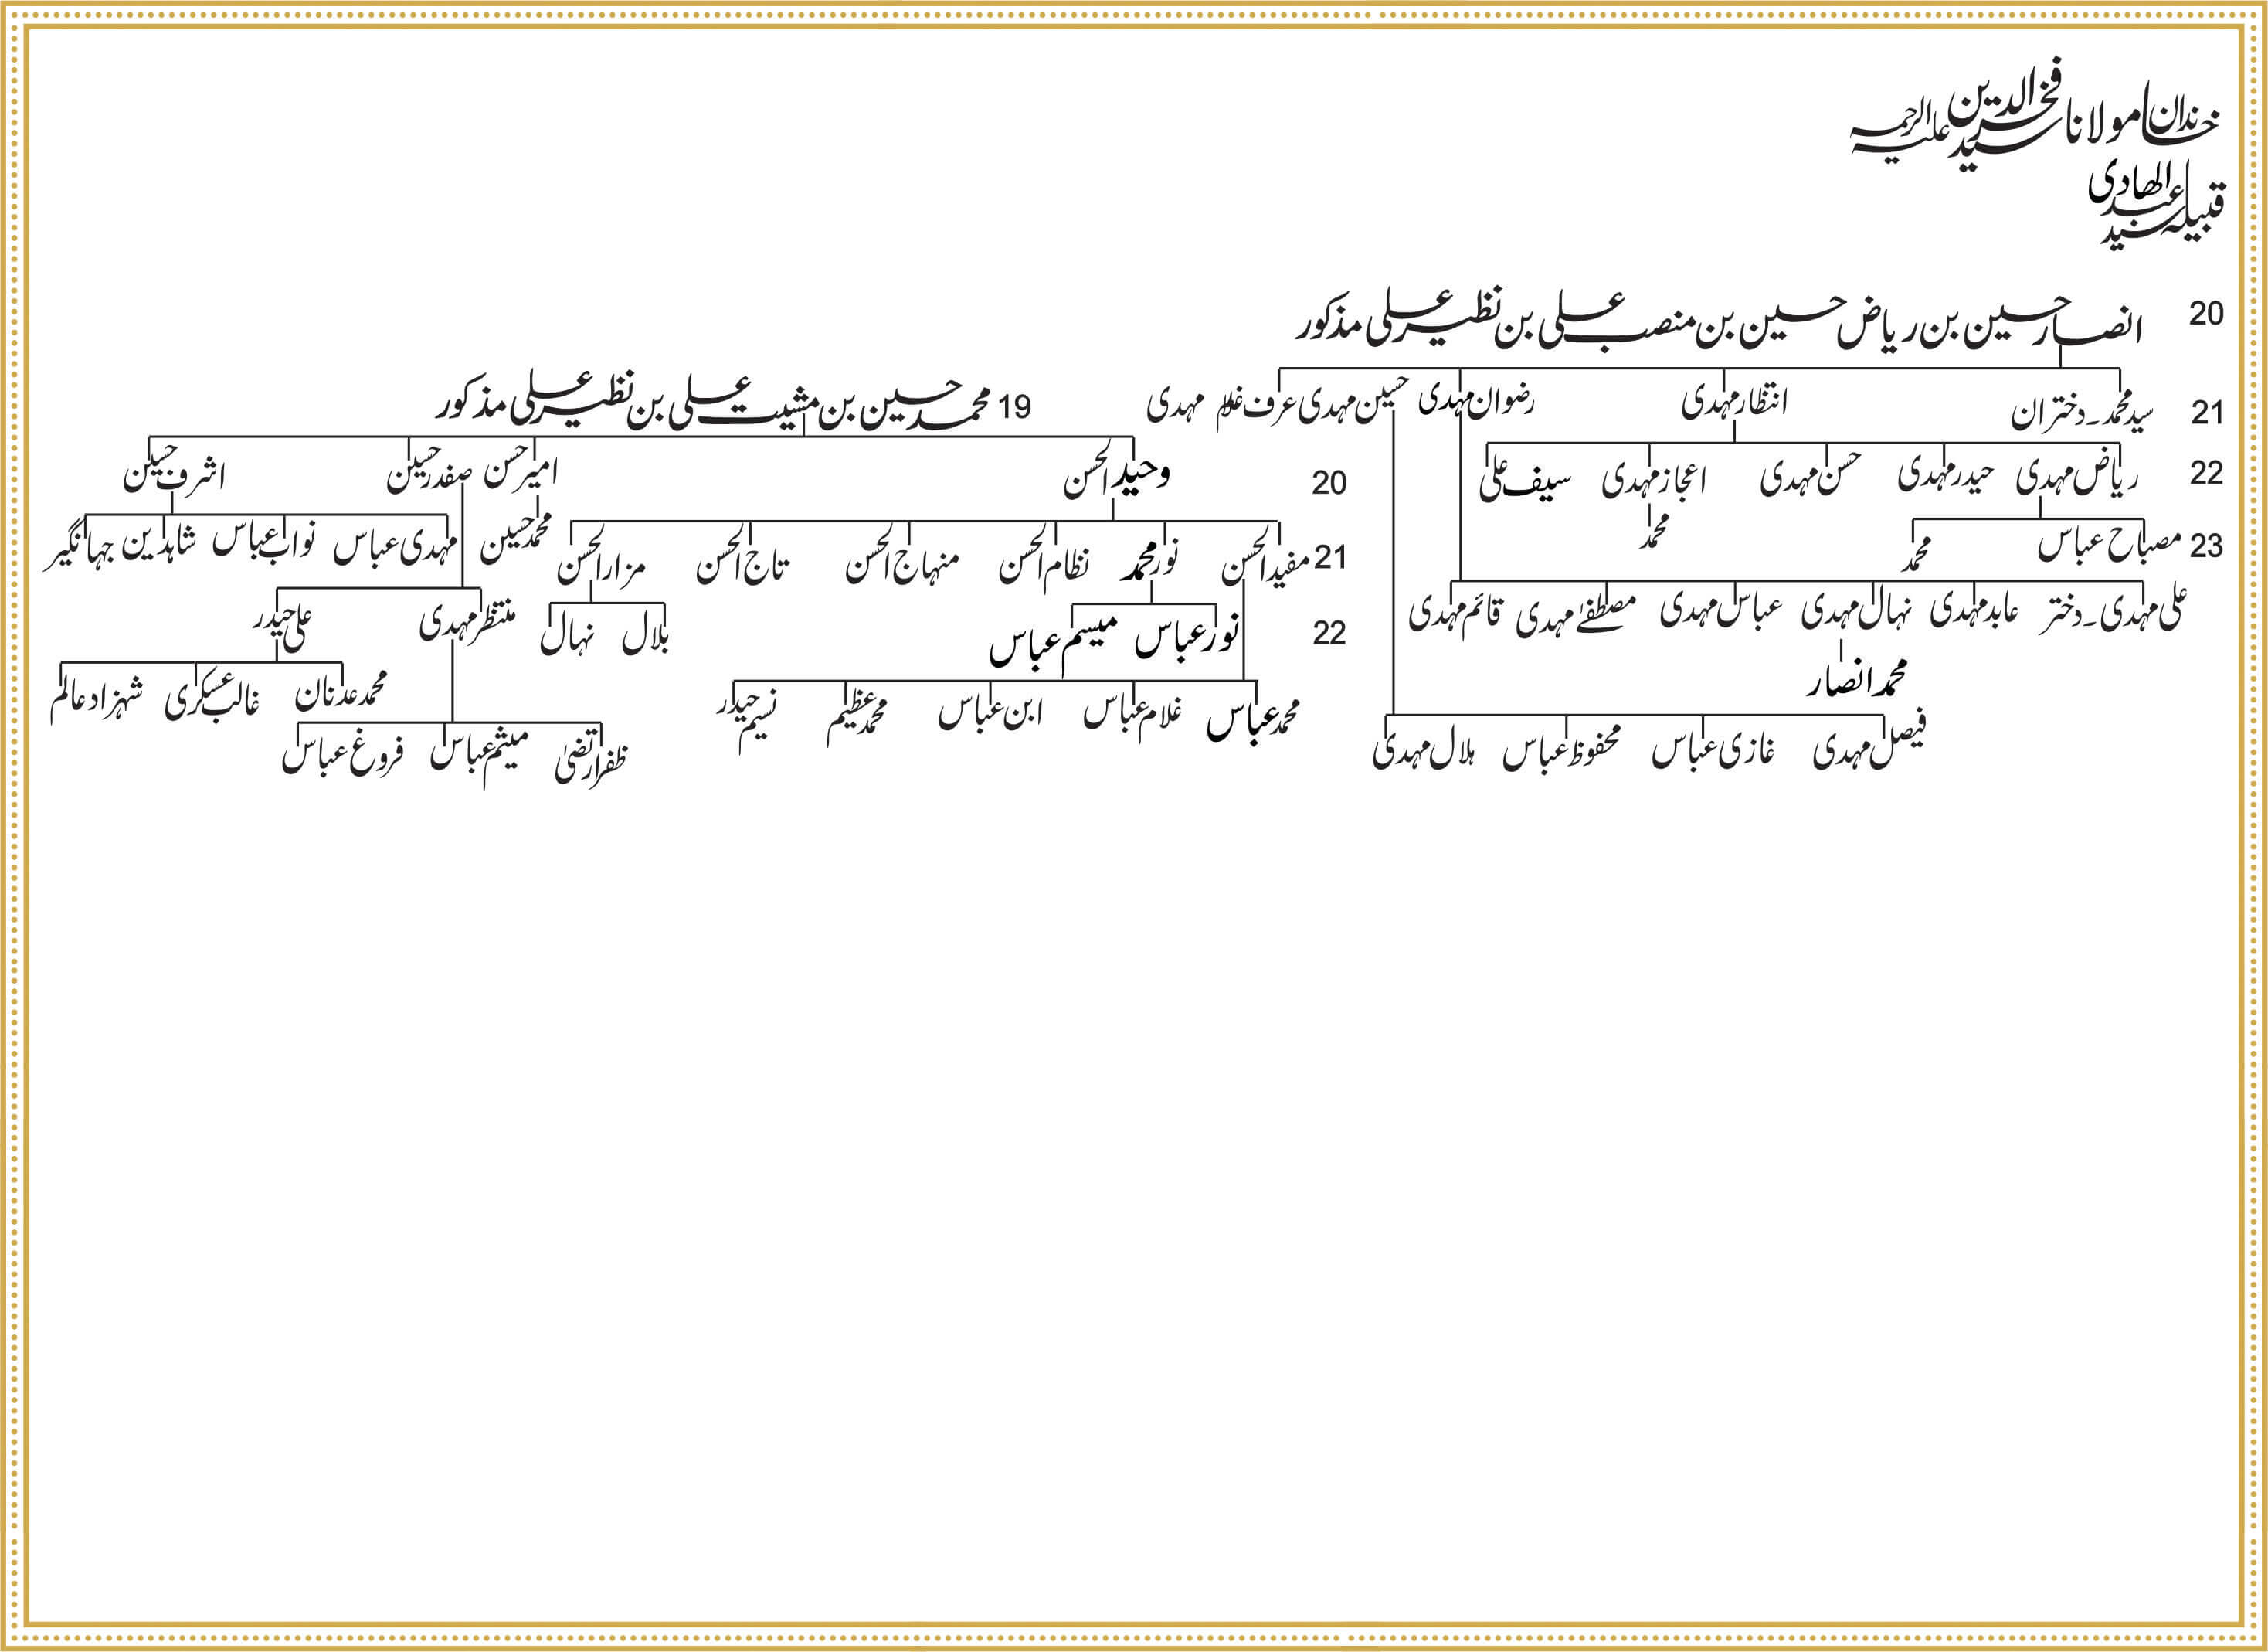 خاندان مولانا سید فخرالدین علیہ الرحمہ
قبیلہ سید عبدالھادی
20 انصار حسین بن ریاض حسین بن منصب علی بن نظیر علی مذکور
21 سید محمد۔دختران انتظار مہدی رضوان مہدی حسین مہدی عرف غلام مہدی
22 ریاض مہدی حیدر مہدی حسن مہدی اعجاز مہدی سیف علی
23 مصباح عباس محمد محمد
علی مہدی۔دختر عابد مہدی نہال مہدی عباس مہدی مصطفےٰ مہدی قائم مہدی
محمد انصار
فیصل مہدی غازی عباس محفوظ عباس ہلال مہدی
19 محمد حسین بن مشیت علی بن نظیر علی مذکور
20 وحید الحسن امیر حسن صفدر حسین اشرف حسین
21 مفید الحسن نور محمد نظام الحسن منہاج الحسن تاج الحسن مزار الحسن
محمد حسین مہدی عباس نواب عباس شاہدین جہانگیر
22 نور عباس میسم عباس بلال نہال
منتظر مہدی علی حیدر
محمد عباس غلام عباس ابن عباس محمد عظیم نسیم حیدر
محمد عدنان غالب عسکری شہزاد عالم
ظفر ارتضیٰ میثم عباس فروغ عباس